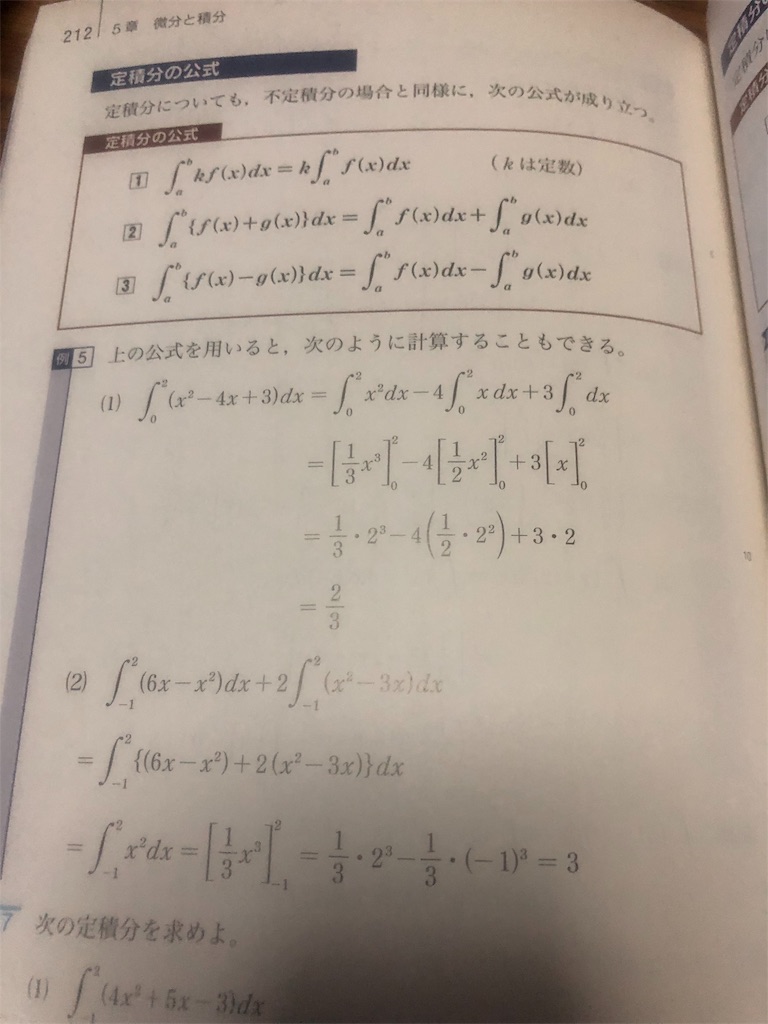 212 5章 微分と積分
定積分の公式
定積分についても，不定積分の場合と同様に，次の公式が成り立つ。
定積分の公式
1 ∫_a^b kf(x)dx = k∫_a^b f(x)dx (kは定数)
2 ∫_a^b {f(x)+g(x)}dx = ∫_a^b f(x)dx + ∫_a^b g(x)dx
3 ∫_a^b {f(x)−g(x)}dx = ∫_a^b f(x)dx − ∫_a^b g(x)dx
例5 上の公式を用いると，次のように計算することもできる。
(1) ∫_0^2 (x²−4x+3)dx = ∫_0^2 x²dx − 4∫_0^2 x dx + 3∫_0^2 dx
= [1/3 x³]_0^2 − 4[1/2 x²]_0^2 + 3[x]_0^2
= 1/3・2³ − 4(1/2・2²) + 3・2
= 2/3
10
(2) ∫_{-1}^2 (6x−x²)dx + 2∫_{-1}^2 (x²−3x)dx
= ∫_{-1}^2 {(6x−x²)+2(x²−3x)}dx
= ∫_{-1}^2 x²dx = [1/3 x³]_{-1}^2 = 1/3・2³ − 1/3・(−1)³ = 3
7 次の定積分を求めよ。
(1) ∫_{-1}^2 (4x²+5x−3)dx